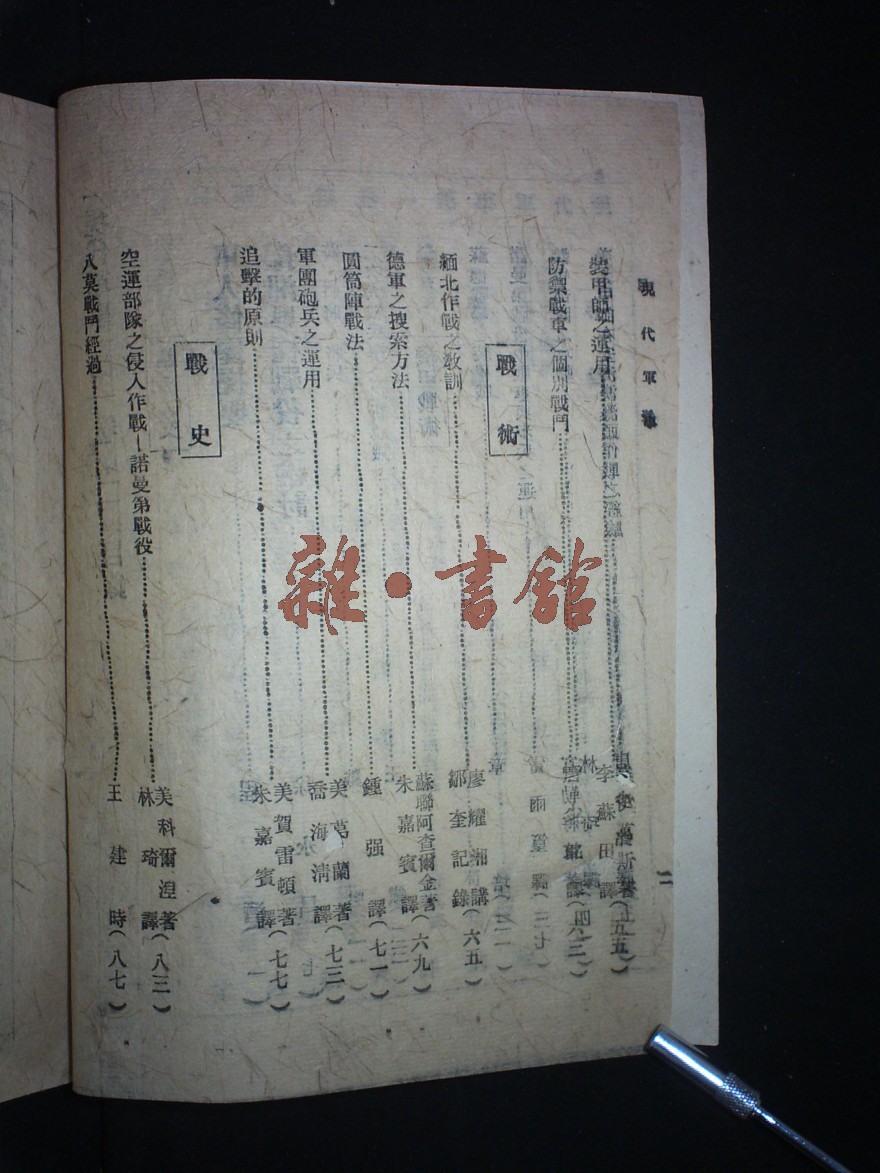 現代軍事
二
裝甲師之運用 李蘇田譯(五五)
防禦戰車之個別戰鬥 譯(六三)
戰術
緬北作戰之教訓 廖耀湘講 鄒奎記錄(六五)
德軍之搜索方法 蘇聯阿查爾金著 朱嘉賓譯(六九)
圓筒陣戰法 鍾强譯(七一)
軍團砲兵之運用 美葛蘭著 喬海清譯(七三)
追擊的原則 美賀雷頓著 朱嘉賓譯(七七)
戰史
空運部隊之侵入作戰—諾曼第戰役 美科爾涅著 林琦譯(八三)
八莫戰鬥經過 王建時(八七)
雜·書館